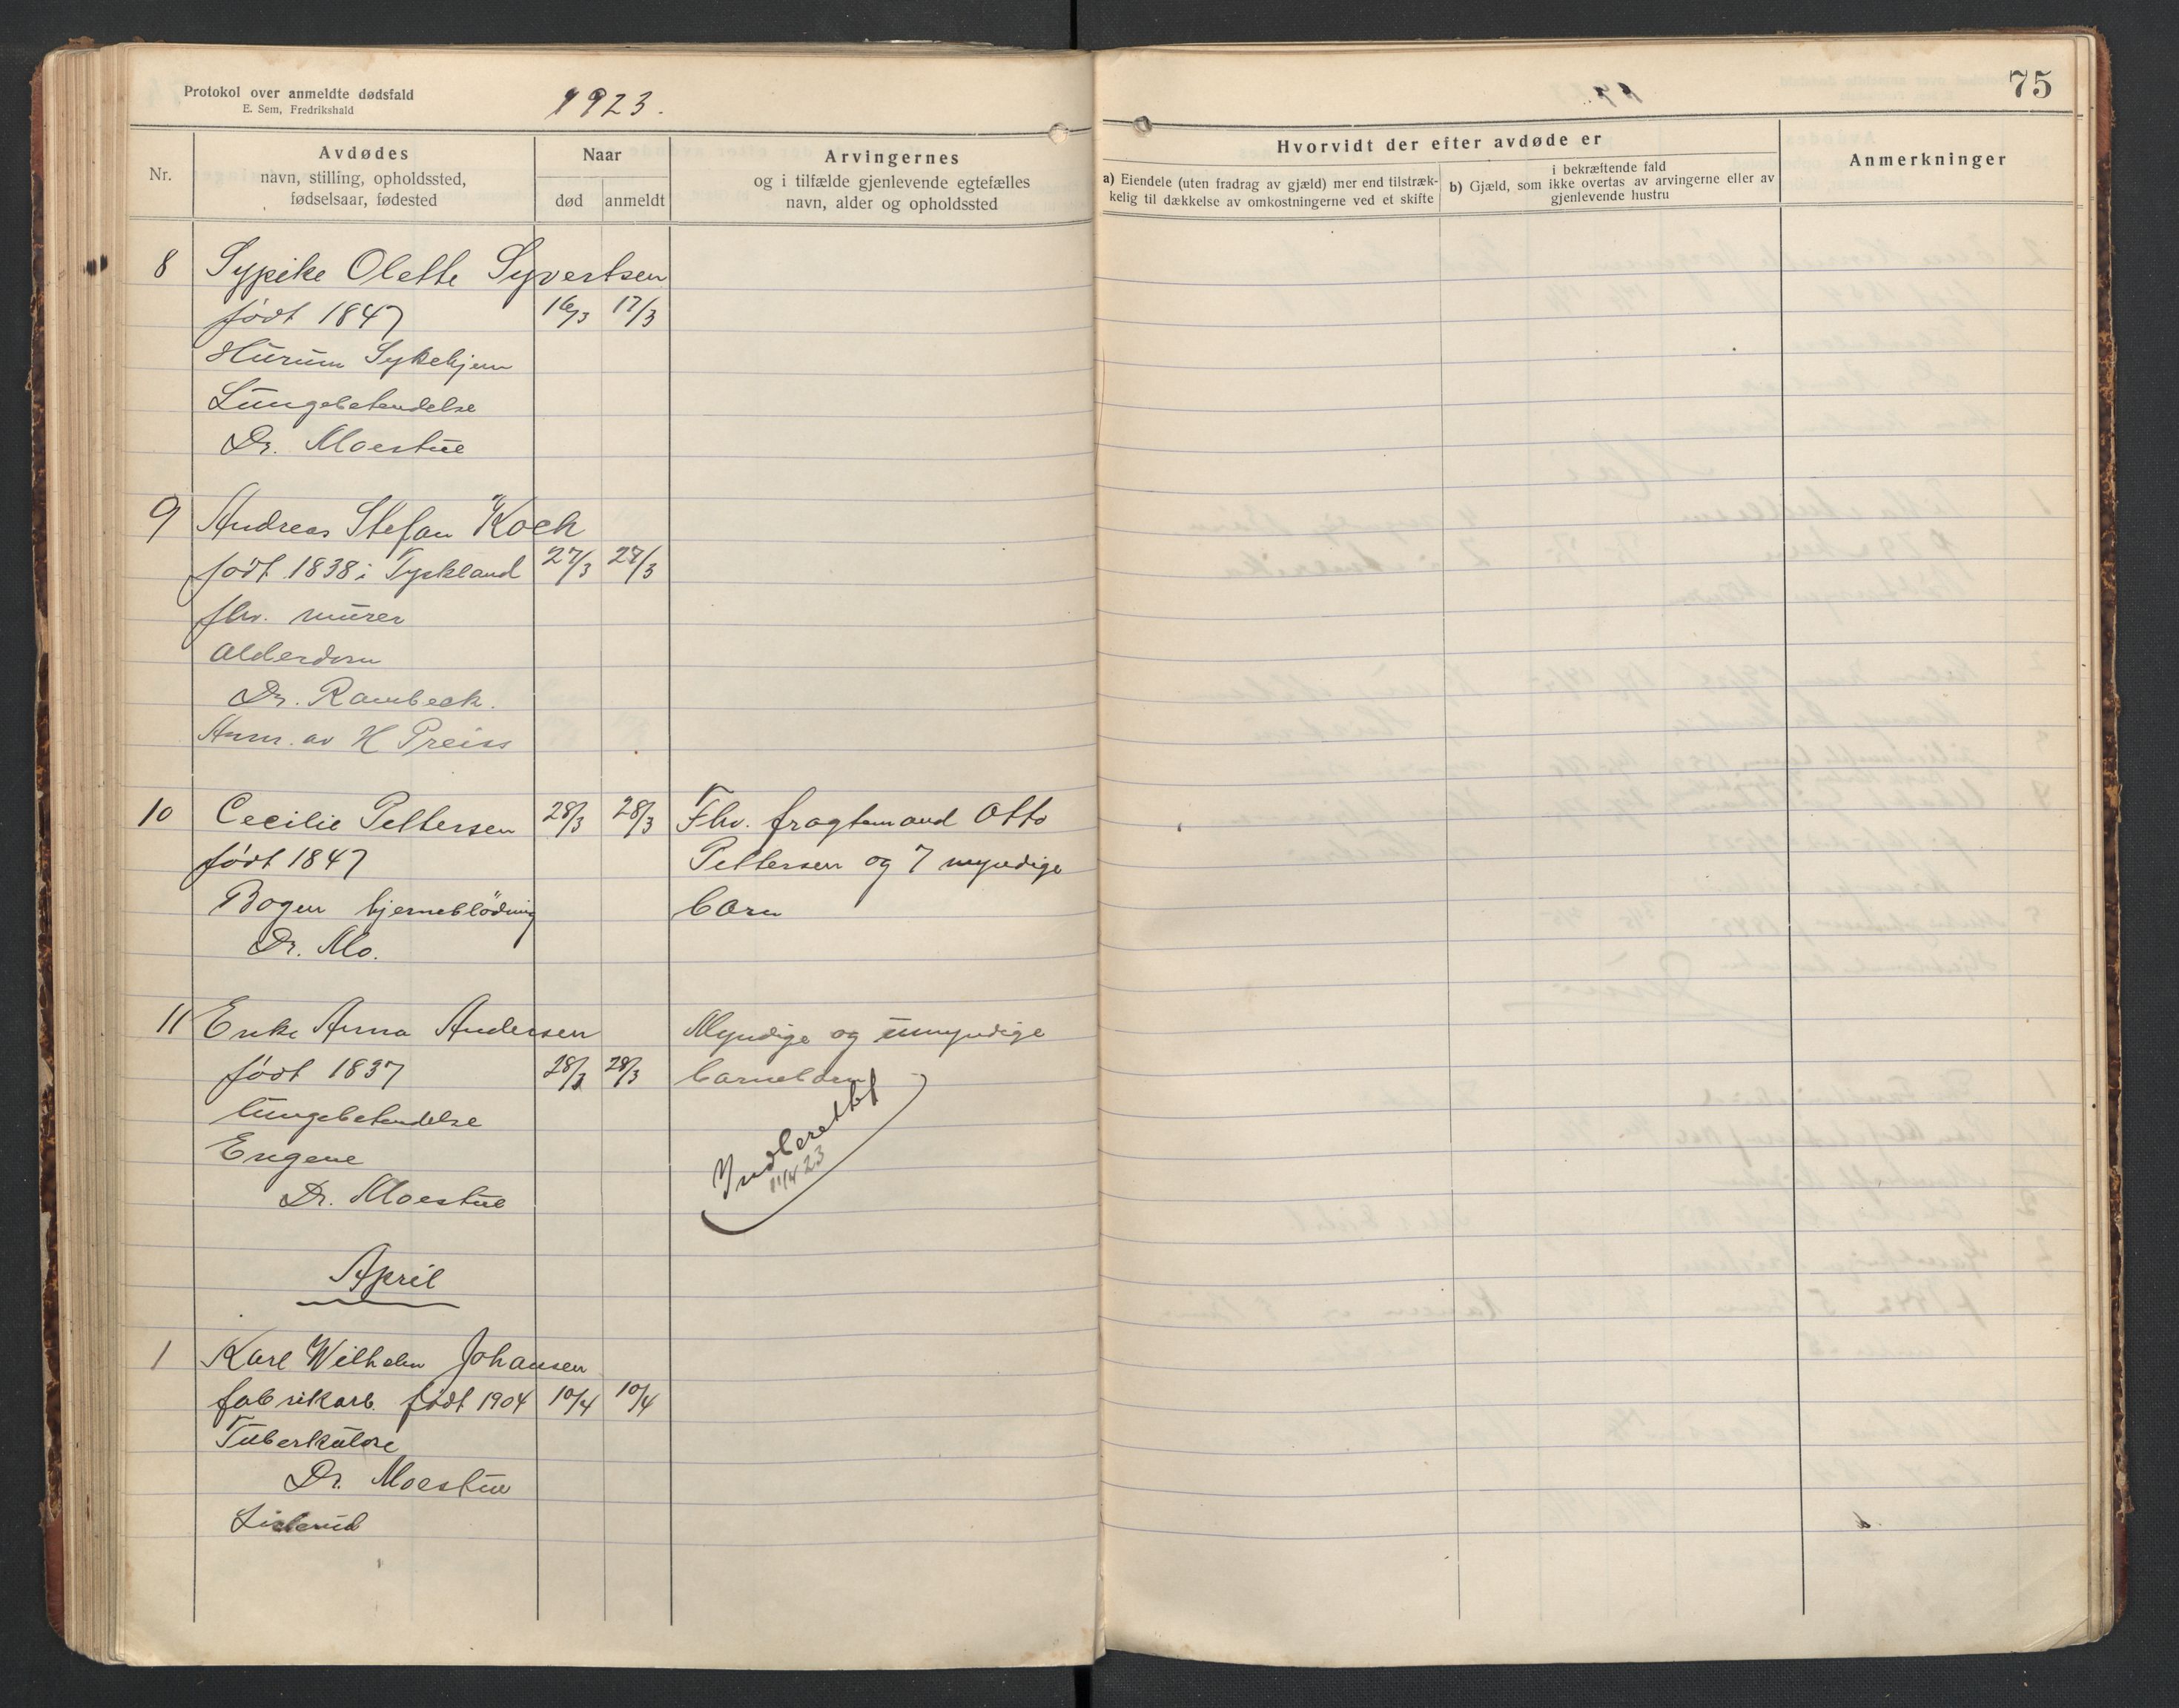 Protokol over anmeldte dødsfald
E. Sem, Fredrikshald
1923.
Nr.
Avdødes
navn, stilling, opholdssted,
fødselsaar, fødested
Naar
død
anmeldt
Arvingernes
og i tilfælde gjenlevende egtefælles
navn, alder og opholdssted
8 Sypike Olette Syvertsen
født 1847 16/3 17/3
Hurum Sykehjem
Lungebetendelse
Dr. Moestue
9 Andreas Stefan Koch
født 1838 i Tyskland 27/3 27/3
fhv. murer
Alderdom
Dr. Rambeck.
Anm. av H Preiss
10 Cecilie Pettersen 28/3 28/3 Fhv. fragtemand Otto
født 1847 Pettersen og 7 myndige
Bogen hjerneblødning barn
Dr. Mo.
11 Enke Anna Andersen Myndige og umyndige
født 1837 28/3 28/3 barnebarn
lungebetendelse
Engene
Dr. Moestue
Indberettet
11/4 23
April
1 Karl Wilhelm Johansen
fabrikarb. født 1904 10/4 10/4
Tuberkulose
Dr. Moestue
75
Hvorvidt der efter avdøde er
a) Eiendele (uten fradrag av gjæld) mer end tilstræk-
kelig til dækkelse av omkostningerne ved et skifte
i bekræftende fald
b) Gjæld, som ikke overtas av arvingerne eller av
gjenlevende hustru
Anmerkninger